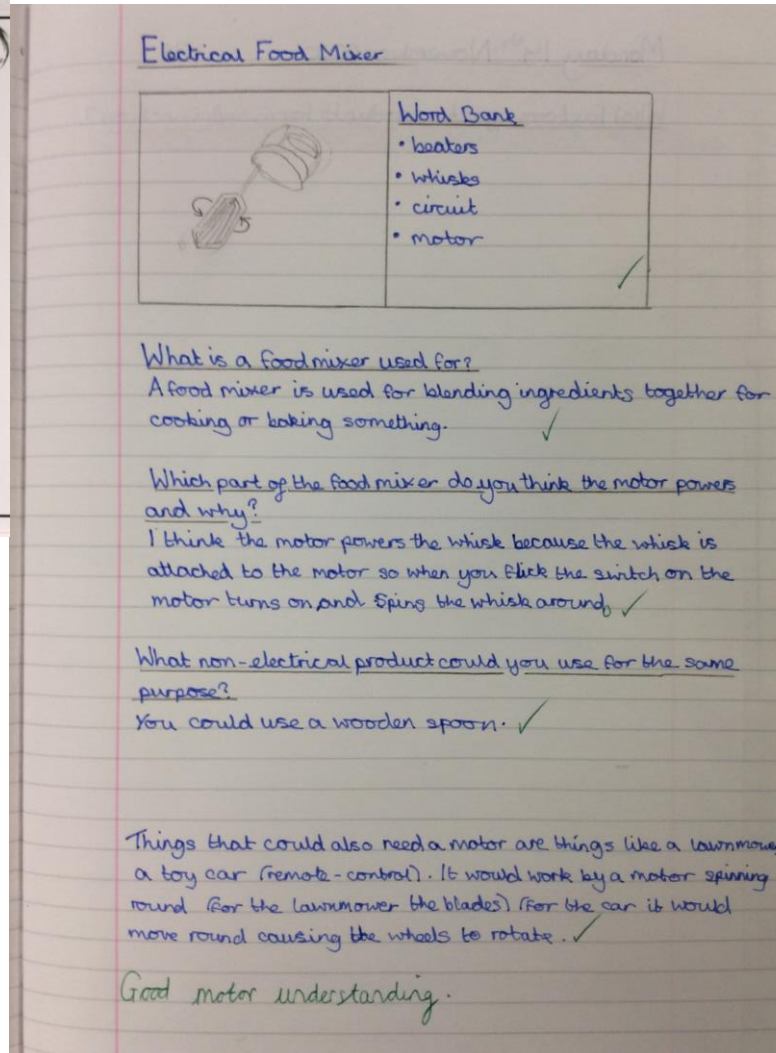 Electrical Food Mixer
Word Bank
• beaters
• whisks
• circuit
• motor
What is a food mixer used for?
A food mixer is used for blending ingredients together for
cooking or baking something.
Which part of the food mixer do you think the motor powers
and why?
I think the motor powers the whisk because the whisk is
attached to the motor so when you flick the switch on the
motor turns on and spins the whisk around.
What non-electrical product could you use for the same
purpose?
You could use a wooden spoon.
Things that could also need a motor are things like a lawnmowe
a toy car (remote-control). It would work by a motor spinning
round (for the lawnmower the blades) (for the car it would
move round causing the wheels to rotate.
Good motor understanding.